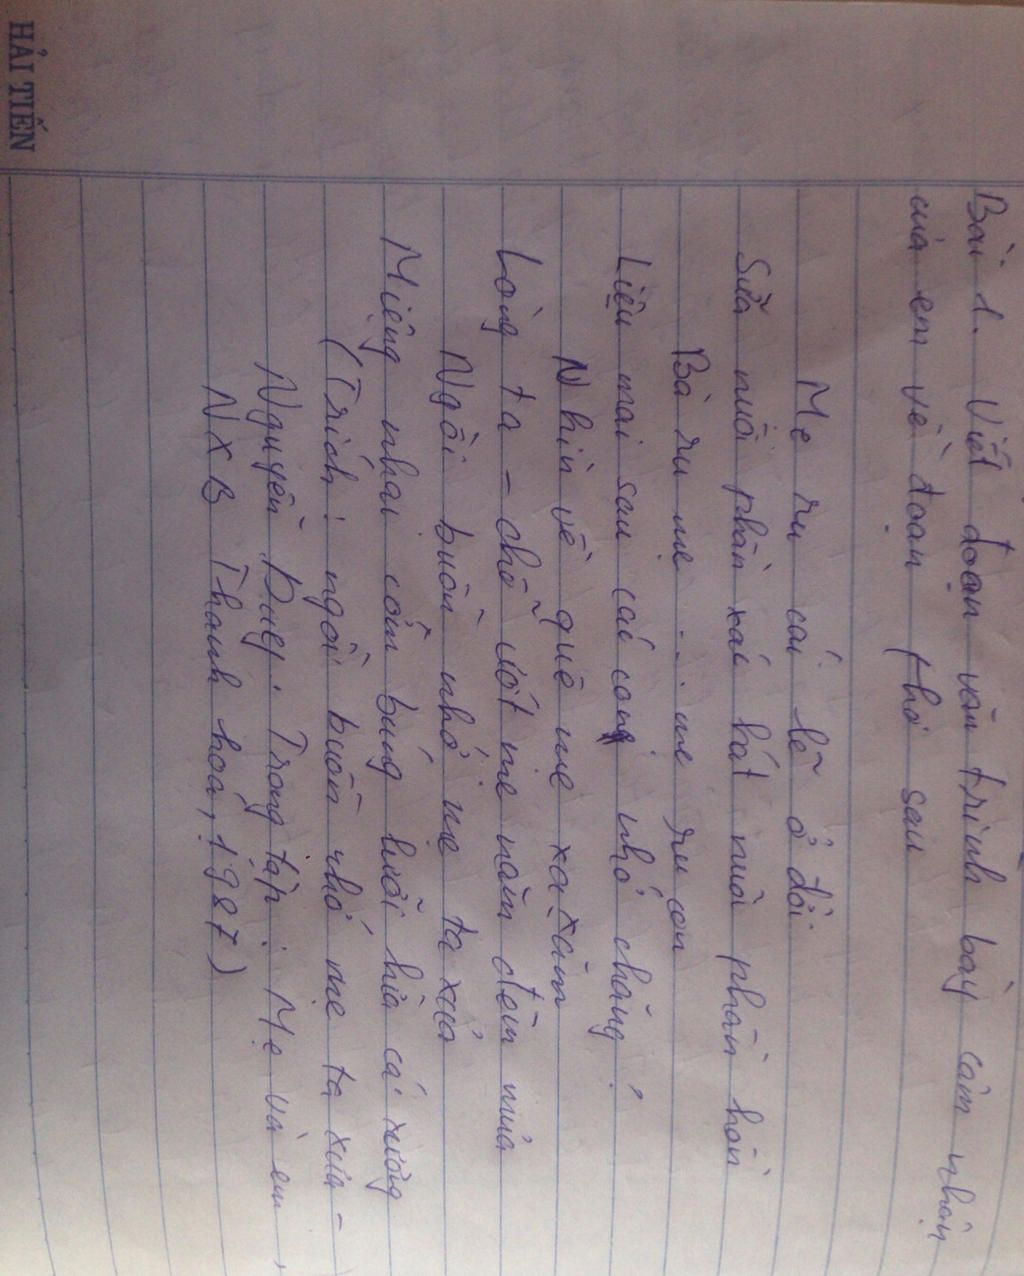 HẢI TIẾN
Bài 1. Viết đoạn văn trình bày cảm nhận
của em về đoạn thơ sau
Mẹ ru cái lẽ ở đời
Sữa nuôi phần xác hát nuôi phần hồn
Bà ru mẹ ... mẹ ru con
Liệu mai sau các con nhớ chăng?
Nhìn về quê mẹ xa xăm
Lòng ta - chỗ ướt mẹ nằm đêm mưa
Ngồi buồn nhớ mẹ ta xưa
Miệng nhai cơm búng lưỡi lừa cá xương
(Trích: ngồi buồn nhớ mẹ ta xưa -
Nguyễn Duy. Trong tập: Mẹ và em,
NXB Thanh hoá, 1987)